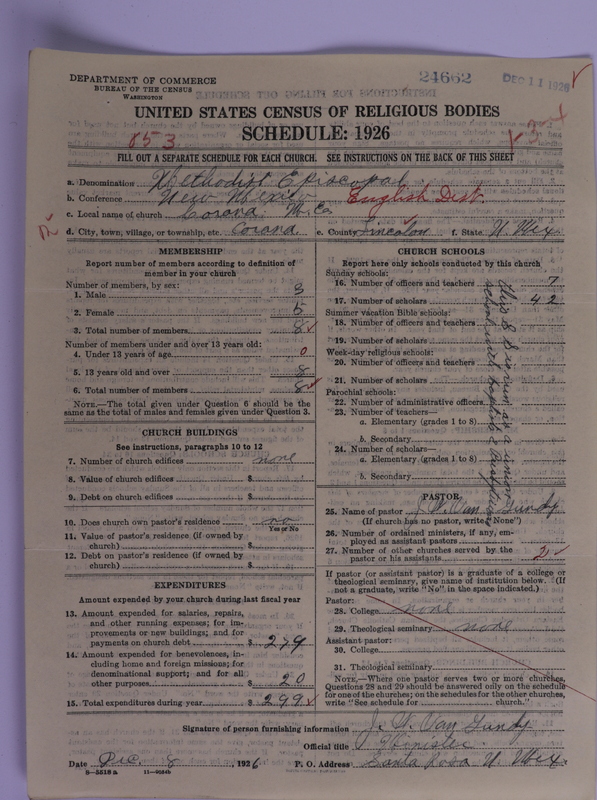 DEPARTMENT OF COMMERCE
BUREAU OF THE CENSUS
WASHINGTON
24662 DEC 11 1926
UNITED STATES CENSUS OF RELIGIOUS BODIES
853 SCHEDULE: 1926
FILL OUT A SEPARATE SCHEDULE FOR EACH CHURCH. SEE INSTRUCTIONS ON THE BACK OF THIS SHEET
a. Denomination Methodist Episcopal
b. Conference New Mexico English Dist.
c. Local name of church Corona
d. City, town, village, or township, etc. Corona e. County Lincoln f. State N. Mex
MEMBERSHIP
Report number of members according to definition of member in your church
Number of members, by sex:
1. Male 3
2. Female 5
3. Total number of members 8
Number of members under and over 13 years old:
4. Under 13 years of age 0
5. 13 years old and over 8
6. Total number of members 8
NOTE.—The total given under Question 6 should be the
same as the total of males and females given under Question 3.
CHURCH BUILDINGS
See instructions, paragraphs 10 to 12
7. Number of church edifices none
8. Value of church edifices $
9. Debt on church edifices $
10. Does church own pastor's residence no
Yes or No
11. Value of pastor's residence (if owned by
church) $
12. Debt on pastor's residence (if owned by
church) $
EXPENDITURES
Amount expended by your church during last fiscal year
13. Amount expended for salaries, repairs,
and other running expenses; for im-
provements or new buildings; and for
payments on church debt $ 279
14. Amount expended for benevolences, in-
cluding home and foreign missions; for
denominational support; and for all
other purposes $ 20
15. Total expenditures during year $ 299
CHURCH SCHOOLS
Report here only schools conducted by this church
Sunday schools:
16. Number of officers and teachers 7
17. Number of scholars 42
Summer vacation Bible schools:
18. Number of officers and teachers
19. Number of scholars
Week-day religious schools:
20. Number of officers and teachers
21. Number of scholars
Parochial schools:
22. Number of administrative officers
23. Number of teachers—
a. Elementary (grades 1 to 8)
b. Secondary
24. Number of scholars—
a. Elementary (grades 1 to 8)
b. Secondary
This is a union school with Baptist & Presbyterians
PASTOR
25. Name of pastor J. W. Van Gundy
(If church has no pastor, write "None")
26. Number of ordained ministers, if any, em-
ployed as assistant pastors
27. Number of other churches served by the
pastor or his assistants 2
If pastor (or assistant pastor) is a graduate of a college or
theological seminary, give name of institution below. (If
not a graduate, write "No" in the space indicated.)
Pastor:
28. College none
29. Theological seminary none
Assistant pastor:
30. College
31. Theological seminary
NOTE.—Where one pastor serves two or more churches,
Questions 28 and 29 should be answered only on the schedule
for one of the churches; on the schedules for the other churches,
write "See schedule for church."
Signature of person furnishing information J. W. Van Gundy
Official title Minister
Date Dec. 8, 1926 P. O. Address Santa Rosa N. Mex
8—5518a 11—9084b